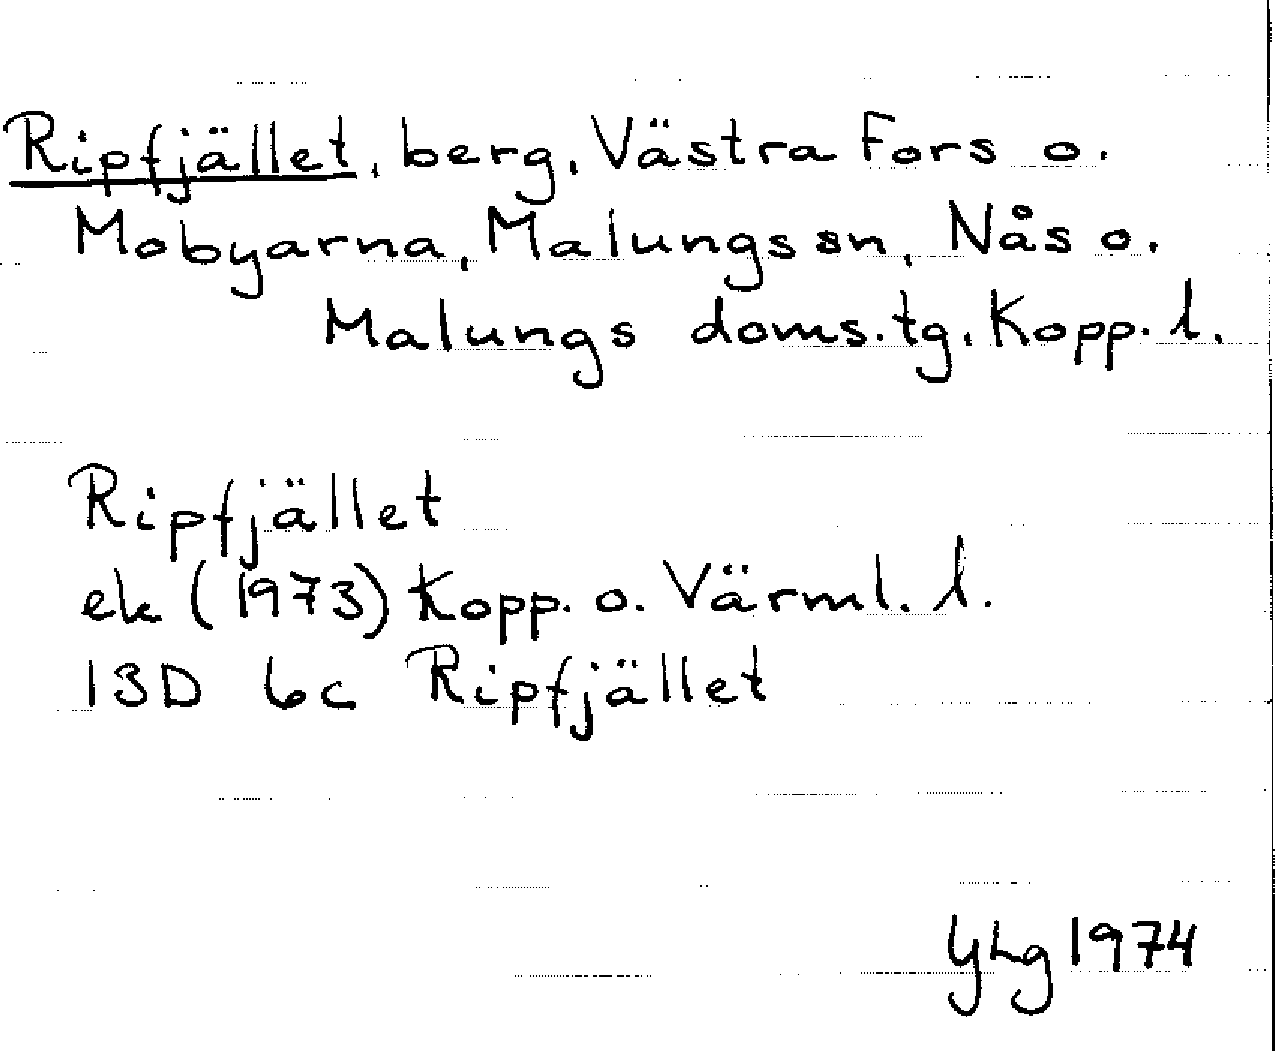 Ripfjället, berg, Västra Fors o.
Mobyarna, Malungs sn, Nås o.
Malungs doms.tg. Kopp. l.
Ripfjället
ek (1973) Kopp. o. Värml. l.
13D 6c Ripfjället
YLg 1974